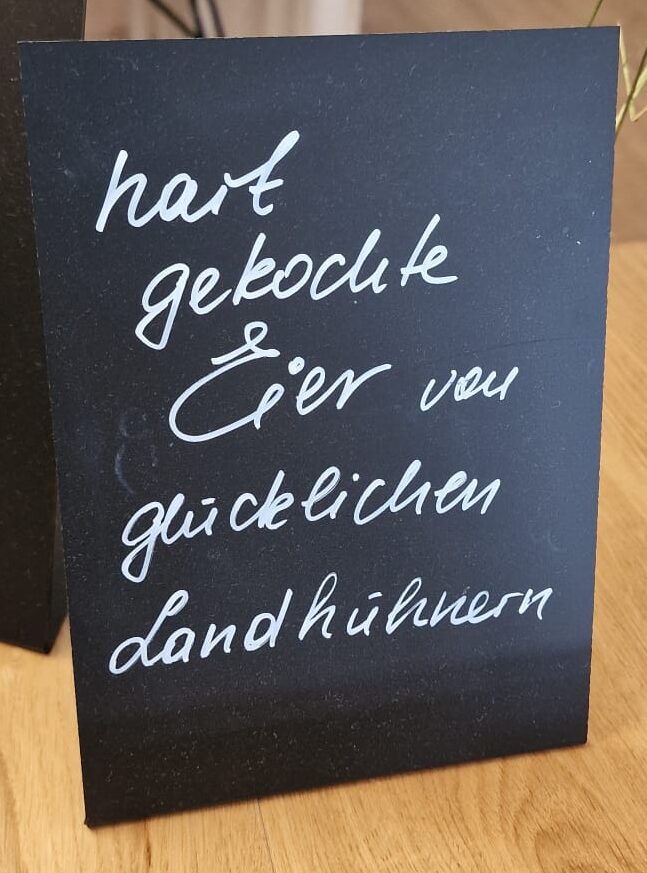 hart
gekochte
Eier von
glücklichen
Landhühnern